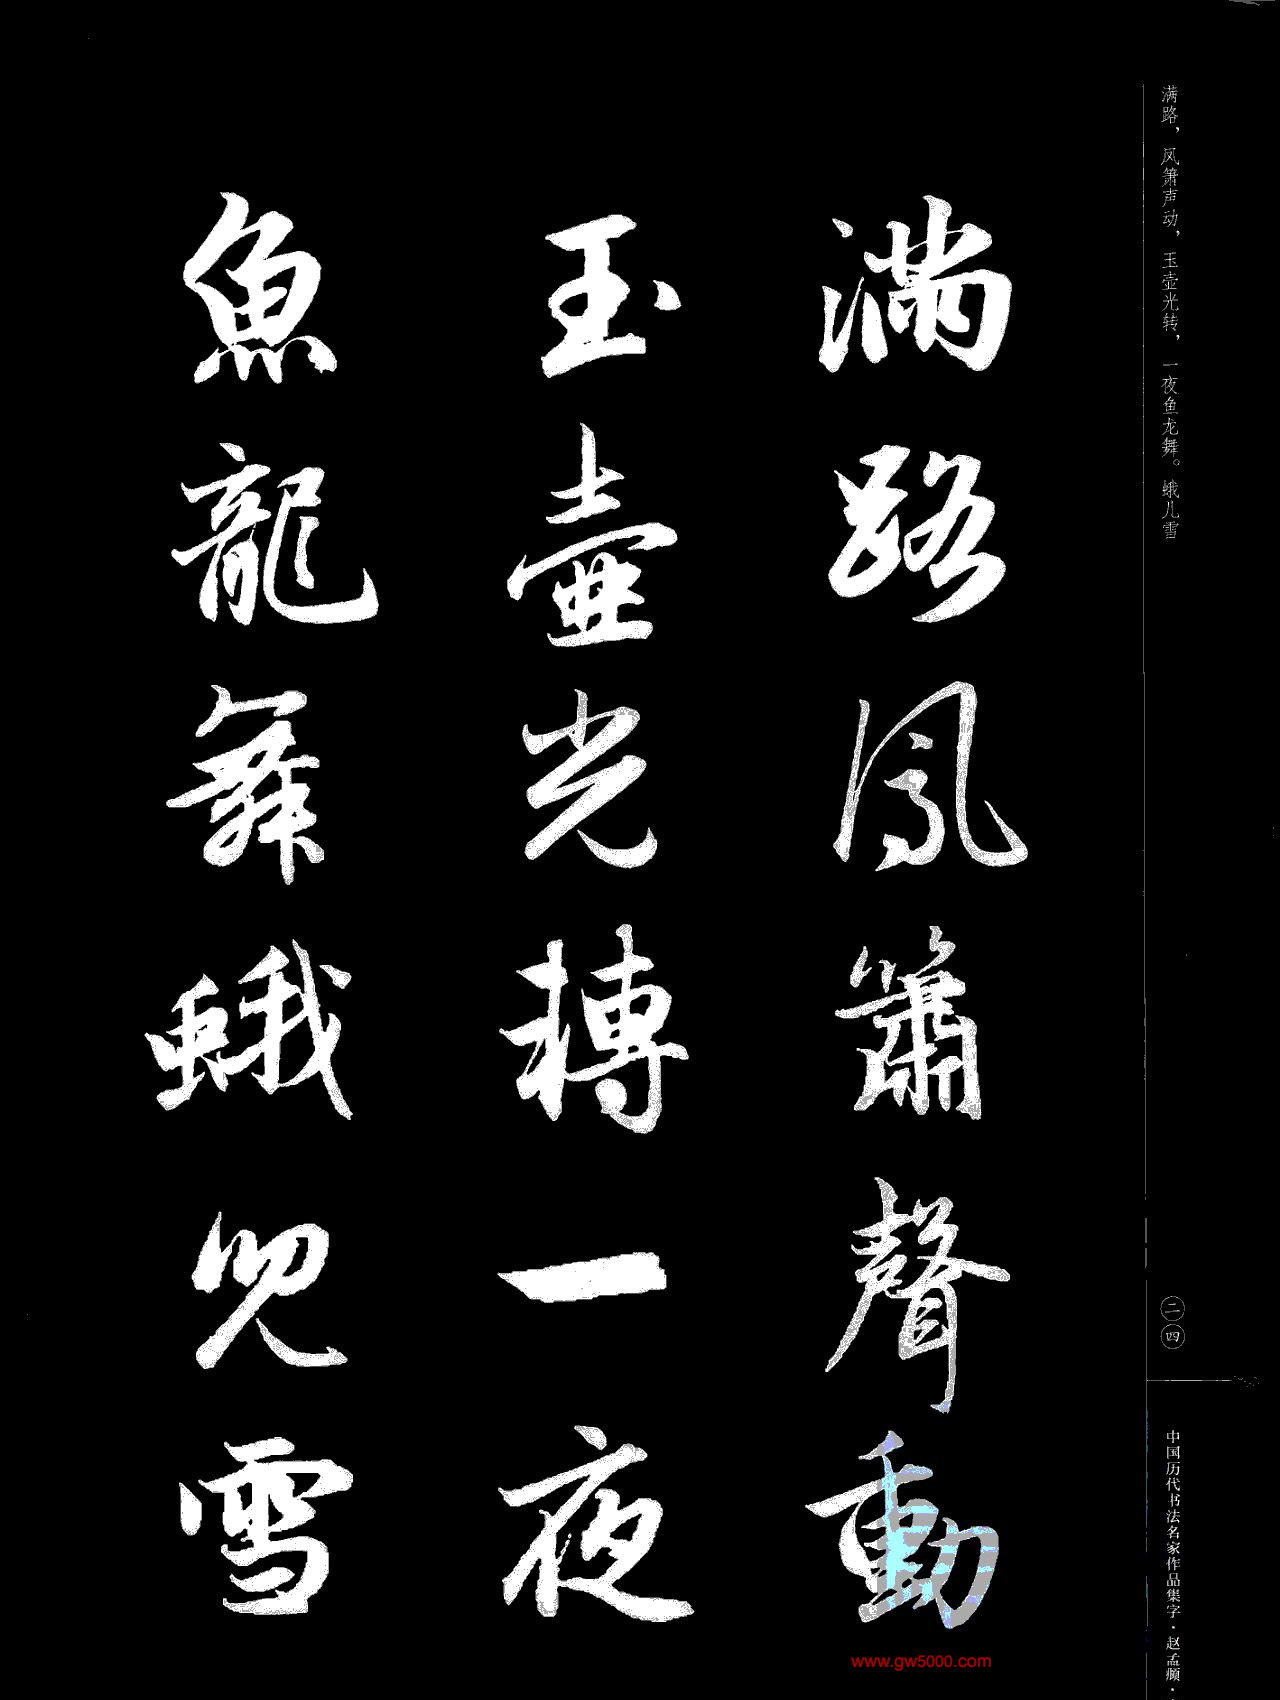 满路，凤箫声动，玉壶光转，一夜鱼龙舞。蛾儿雪
滿路鳳簫聲動
玉壺光轉一夜
魚龍舞蛾兒雪
二四
中国历代书法名家作品集字·赵孟頫·
www.gw5000.com